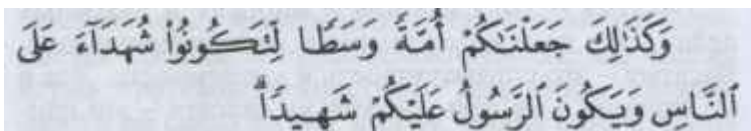 وَكَذَٰلِكَ جَعَلْنَٰكُمْ أُمَّةً وَسَطًا لِّتَكُونُوا۟ شُهَدَآءَ عَلَى
ٱلنَّاسِ وَيَكُونَ ٱلرَّسُولُ عَلَيْكُمْ شَهِيدًاۗ